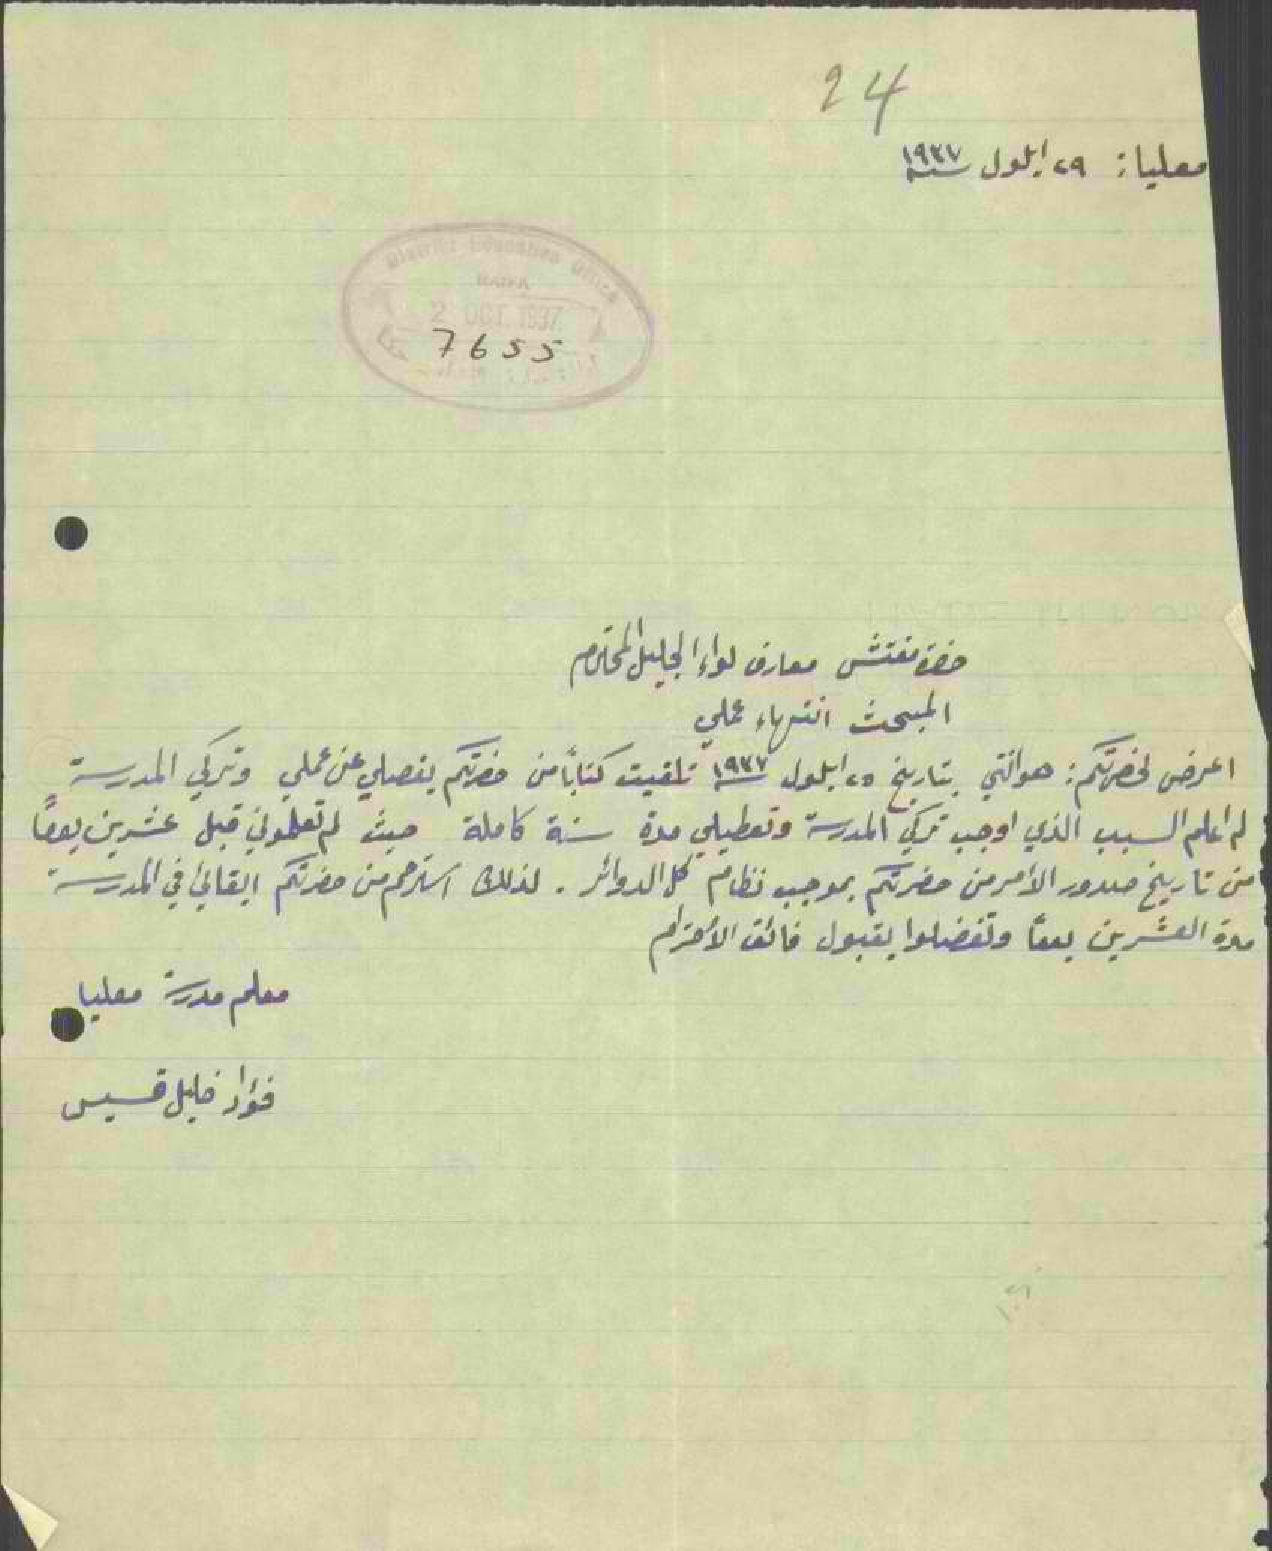 24
معليا: ٢٩ ايلول سنة ١٩٣٧
District Education Office
HAIFA
2 OCT. 1937
7655
حضرة مفتش معارف لواء الجليل المحترم
المبحث انتهاء عملي
اعرض لحضرتكم: هو انني بتاريخ ٢٥ ايلول سنة ١٩٣٧ تلقيت كتاباً من حضرتكم بفصلي عن عملي وتركي المدرسة
لم اعلم السبب الذي اوجب تركي المدرسة وتعطيلي مدة سنة كاملة حيث لم تعلموني قبل عشرين يوماً
من تاريخ صدور الأمر من حضرتكم بموجب نظام كل الدوائر. لذلك استرحم من حضرتكم ابقائي في المدرسة
مدة العشرين يوماً وتفضلوا بقبول فائق الأحترام
معلم مدرسة معليا
فؤاد خليل قسيس